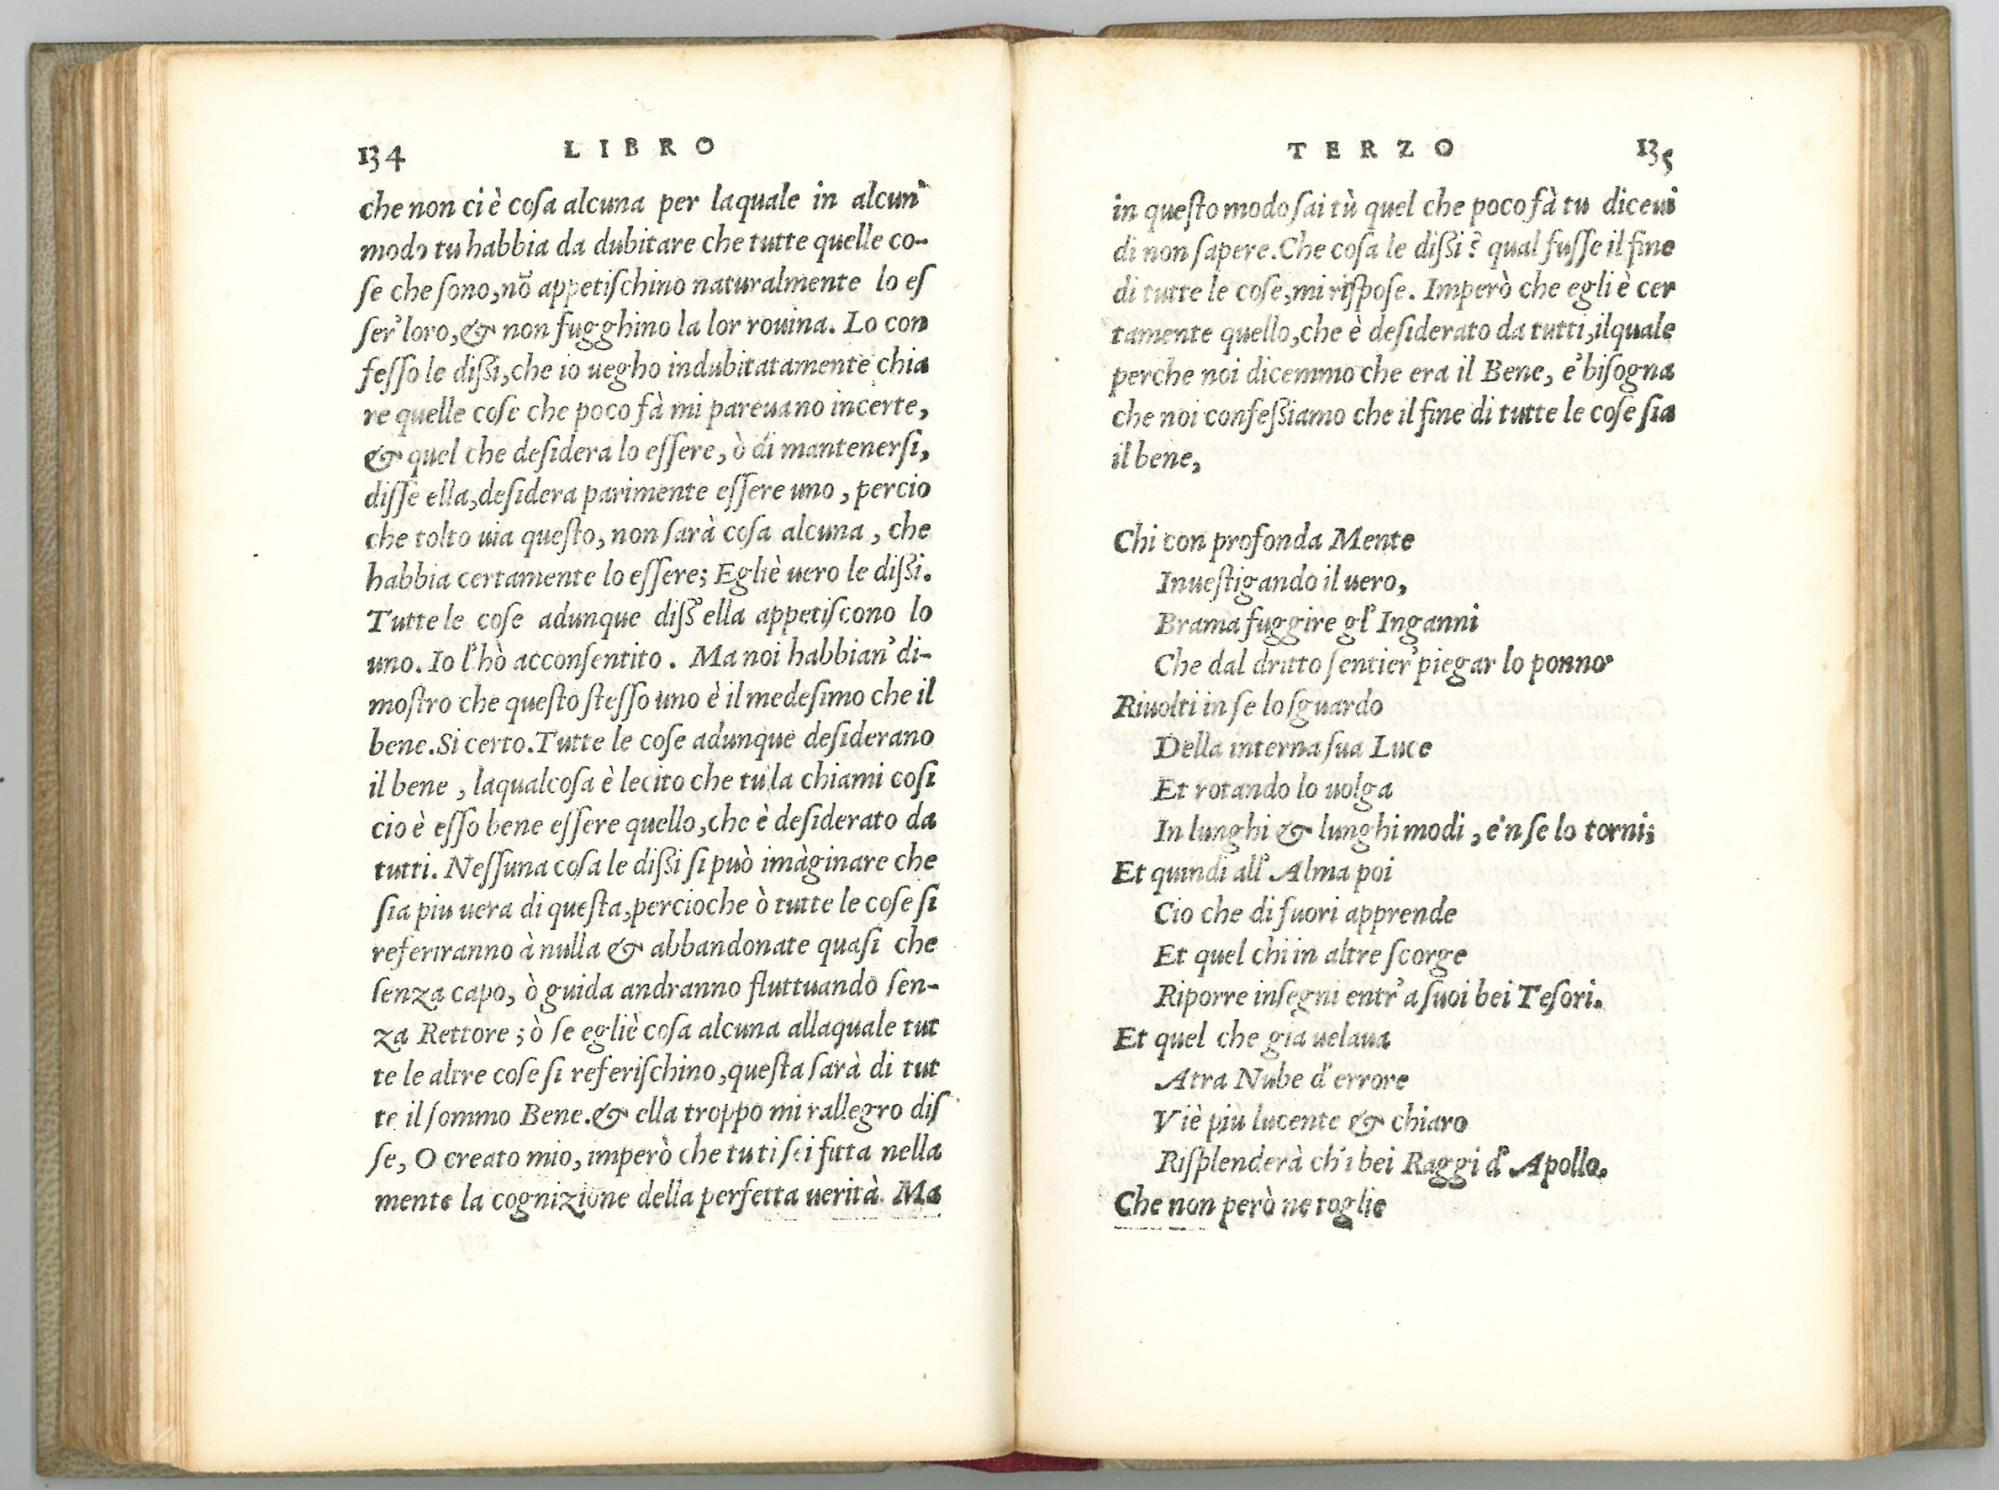 134 LIBRO
che non ci è coſa alcuna per laquale in alcun'
modo tu habbia da dubitare che tutte quelle co-
ſe che ſono, nõ appetiſchino naturalmente lo eſ
ſer' loro, & non fugghino la lor rouina. Lo con
feſſo le diſſi, che io uegho indubitatamente chia
re quelle coſe che poco fà mi pareuano incerte,
& quel che deſidera lo eſſere, ò di mantenerſi,
diſſe ella, deſidera parimente eſſere uno, percio
che tolto uia queſto, non ſarà coſa alcuna, che
habbia certamente lo eſſere; Egliè uero le diſſi.
Tutte le coſe adunque diſſ' ella appetiſcono lo
uno. Io l'hò acconſentito. Ma noi habbian' di-
moſtro che queſto ſteſſo uno è il medeſimo che il
bene. Si certo. Tutte le coſe adunque deſiderano
il bene, laqualcoſa è lecito che tu la chiami coſi
cio è eſſo bene eſſere quello, che è deſiderato da
tutti. Neſſuna coſa le diſſi ſi può imàginare che
ſia piu uera di queſta, percioche ò tutte le coſe ſi
referiranno à nulla & abbandonate quaſi che
ſenza capo, ò guida andranno fluttuando ſen-
za Rettore; ò ſe egliè coſa alcuna allaquale tut
te le altre coſe ſi referiſchino, queſta ſarà di tut
te il ſommo Bene. & ella troppo mi rallegro diſ
ſe, O creato mio, imperò che tu ti ſei fitta nella
mente la cognizione della perfetta uerità. Ma
TERZO 135
in queſto modo ſai tù quel che poco fà tu diceui
di non ſapere. Che coſa le diſſi? qual fuſſe il fine
di tutte le coſe, mi riſpoſe. Imperò che egli è cer
tamente quello, che è deſiderato da tutti, ilquale
perche noi dicemmo che era il Bene, e' biſogna
che noi confeſſiamo che il fine di tutte le coſe ſia
il bene,
Chi con profonda Mente
Inueſtigando il uero,
Brama fuggire gl' Inganni
Che dal dritto ſentier' piegar lo ponno
Riuolti in ſe lo ſguardo
Della interna ſua Luce
Et rotando lo uolga
In lunghi & lunghi modi, e'n ſe lo torni;
Et quindi all' Alma poi
Cio che di fuori apprende
Et quel chi in altre ſcorge
Riporre inſegni entr' a ſuoi bei Teſori.
Et quel che gia uelaua
Atra Nube d'errore
Viè più lucente & chiaro
Riſplenderà ch'i bei Raggi d' Apollo.
Che non però ne toglie